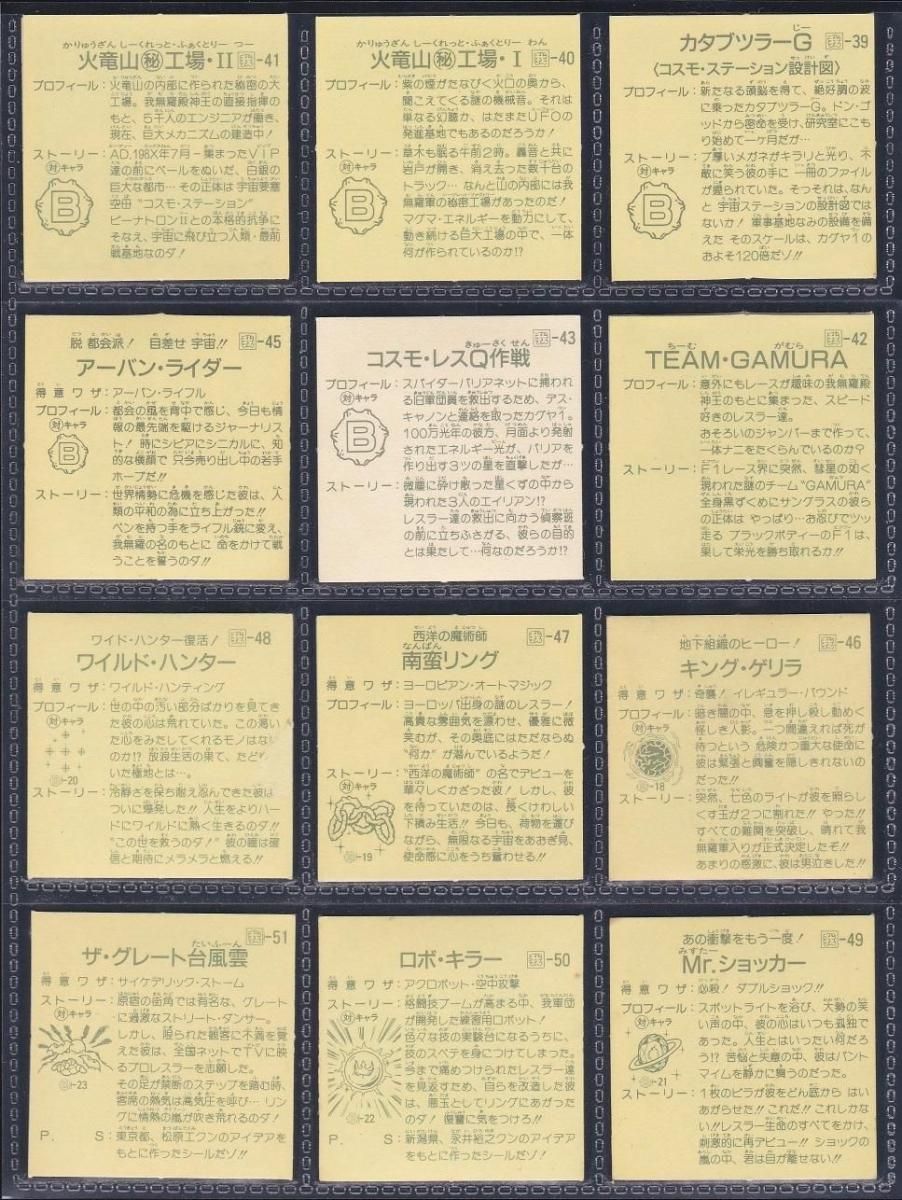 かりゅうざん しーくれっと・ふぁくとりー つー
火竜山㊙工場・II 我-41
プロフィール：火竜山の内部に作られた秘密の大
工場。我無羅殿神王の直接指揮の
もと、5千人のエンジニアが働き、
現在、巨大メカニズムの建造中！
ストーリー：A.D.198X年7月－集まったVIP
対キャラ
達の前にベールをぬいだ、白銀の
巨大な都市…その正体は宇宙要塞
空田“コスモ・ステーション”
ビーナトロンIIとの本格的抗争に
そなえ、宇宙に飛び立つ人類・最前
戦基地なのダ！
B
かりゅうざん しーくれっと・ふぁくとりー わん
火竜山㊙工場・I 我-40
プロフィール：紫の煙がたなびく火口の奥から、
聞こえてくる謎の機械音。それは
単なる幻聴か、はたまたUFOの
発進基地でもあるのだろうか！
ストーリー：草木も眠る午前2時。轟音と共に
対キャラ
岩戸が開き、消え去った数十台の
トラック…なんと山の内部には我
無羅軍の秘密工場があったのだ！
マグマ・エネルギーを動力にして、
動き続ける巨大工場の中で、一体
何が作られているのか!?
B
じー
カタブツラーG 我-39
〈コスモ・ステーション設計図〉
プロフィール：新たなる頭脳を得て、絶好調の波
に乗ったカタブツラーG。ドン・ゴ
ッドから密命を受け、研究室にこも
り始めて一ヶ月だが…
ストーリー：ブ厚いメガネがキラリと光り、不
対キャラ
敵に笑う彼の手に 一冊のファイル
が握られていた。そっそれは、なん
と 宇宙ステーションの設計図では
ないか！ 軍事基地なみの設備を備
えた そのスケールは、カグヤ1の
およそ120倍だゾ!!
B
脱 都会派！ 目差せ 宇宙!! 我-45
アーバン・ライダー
得意ワザ：アーバン・ライフル
プロフィール：都会の風を背中で感じ、今日も情
対キャラ
報の最先端を駆けるジャーナリス
ト！ 時にシビアにシニカルに、知
的な横顔で 只今売り出し中の若手
ホープだ!!
B
ストーリー：世界情勢に危機を感じた彼は、人
類の平和の為に立ち上がった!!
ペンを持つ手をライフル銃に変え、
我無羅の名のもとに 命をかけて戦
うことを誓うのダ!!
きゅーさくせん
コスモ・レスQ作戦 我-43
プロフィール：スパイダーバリアネットに捕われ
対キャラ
る旧軍団員を救出するため、デス・
キャノンと連絡を取ったカグヤ1。
100万光年の彼方、月面より発射
されたエネルギー光が、バリアを
作り出す3ツの星を直撃したが…
B
ストーリー：微塵に砕け散った星くずの中から
現われた3人のエイリアン!?
レスラー達の救出に向かう偵察班
の前に立ちふさがる、彼らの目的
とは果たして…何なのだろうか!?
ちーむ がむら 我-42
TEAM・GAMURA
プロフィール：意外にもレースが趣味の我無羅殿
神王のもとに集まった、スピード
好きのレスラー達。
おそろいのジャンパーまで作って、
一体ナニをたくらんでいるのか？
ストーリー：F1レース界に突然、彗星の如く
現われた謎のチーム“GAMURA”
全身黒ずくめにサングラスの彼ら
の正体は やっぱり…お忍びでツッ
走る ブラックボディーのF1は、
果して栄光を勝ち取れるか!!
ワイド・ハンター復活！ 我-48
ワイルド・ハンター
得意ワザ：ワイルド・ハンティング
プロフィール：世の中の汚い部分ばかりを見て
対キャラ
きた彼の心は荒れていた。この渇い
た心をみたしてくれるモノはない
のか!? 放浪生活の果て、たどり
いた極地とは…
-20
ストーリー：冷静さを保ち耐え忍んできた彼は
ついに爆発した!! 人生をよりハー
ドにワイルドに熱く生きるのダ!!
“この世を救うのダ！” 彼の瞳は確
信と期待にメラメラと燃える!!
西洋の魔術師 我-47
なんばん
南蛮リング
得意ワザ：ヨーロピアン・オートマジック
プロフィール：ヨーロッパ出身の謎のレスラー！
高貴な雰囲気を漂わせ、優雅に微
笑むが、その奥底にはただならぬ
“何か”が潜んでいるようだ！
ストーリー：“西洋の魔術師”の名でデビューを
対キャラ
華々しくかざった彼！ しかし、彼
を待っていたのは、長くけわしい
下積み生活!! 今日も、荷物を運び
ながら、無限なる宇宙をあおぎ見、
使命感に心をうち奮わせる!!
-19
地下組織のヒーロー！ 我-46
キング・ゲリラ
得意ワザ：奇襲！ イレギュラー・バウンド
プロフィール：暗き闇の中、息を押し殺し動めく
対キャラ
怪しき人影。一つ間違えれば死が
待つという 危険かつ重大な使命に
彼は緊張と興奮を隠しきれないの
だった!!
-18
ストーリー：突然、七色のライトが彼を照らし
くす玉が2つに割れた!! やった!!
すべての難関を突破し、晴れて我
無羅軍入りが正式決定したぞ!!
あまりの感激に、彼は男泣きした!!
たいふーん 我-51
ザ・グレート台風雲
得意ワザ：サイケデリック・ストーム
ストーリー：原宿の街角では有名な、グレート
対キャラ
に過激なストリート・ダンサー。
しかし、限られた観客に不満を覚
えた彼は、全国ネットでTVに映
るプロレスラーを志願した。
その足が禁断のステップを踏む時、
客席の熱気は高気圧を呼び…リン
グに情熱の嵐が吹き荒れるのダ！
-23
P．S：東京都、松原工クンのアイデアを
もとに作ったシールだゾ!!
ロボ・キラー 我-50
得意ワザ：アクロボット・空中攻撃
ストーリー：格闘技ブームが高まる中、我軍団
対キャラ
が開発した練習用ロボット！
色々な技の実験台になるうちに、
技のスベテを身につけてしまった。
今まで痛めつけられたレスラー達
を見返すため、自らを改造した彼
は、悪玉としてリングにあがった
のダ！ 復讐に気をつけろ!!
-22
P．S：新潟県、永井裕之クンのアイデア
をもとに作ったシールだゾ！
あの衝撃をもう一度！ 我-49
みすたー
Mr.ショッカー
得意ワザ：必殺！ ダブルショック!!
プロフィール：スポットライトを浴び、大勢の笑
対キャラ
い声の中、彼の心はいつも孤独で
あった。人生とはいったい何だろ
う!? 苦悩と失意の中、彼はパント
マイムを静かに舞うのだった。
-21
ストーリー：1枚のビラが彼をどん底から は
いあがらせた!! これだ!! これしか
ない!! レスラー生命のすべてをかけ、
刺激的に再デビュー!! ショックの
嵐の中、君は目が離せない!!